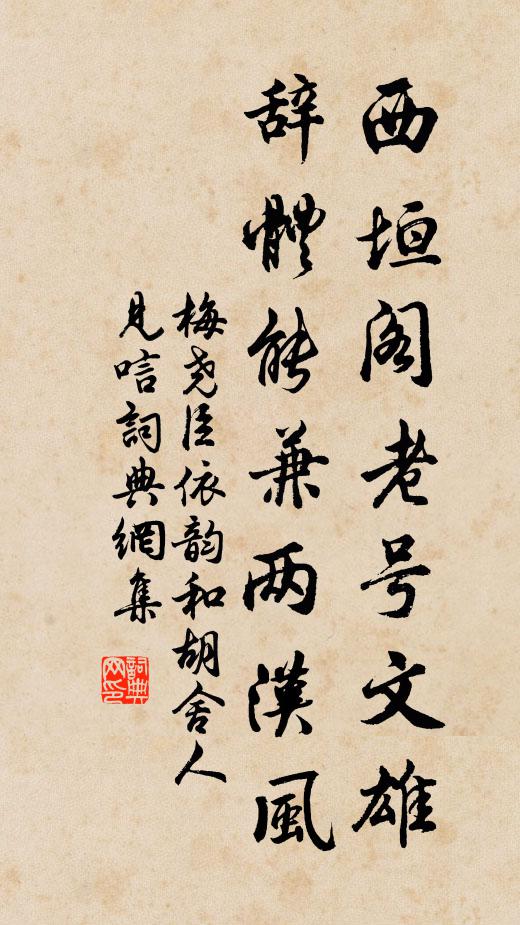 西垣阁老号文雄
辞體能兼两漢風
梅尧臣依韵和胡舍人
見唁詞典網集
詞典网印